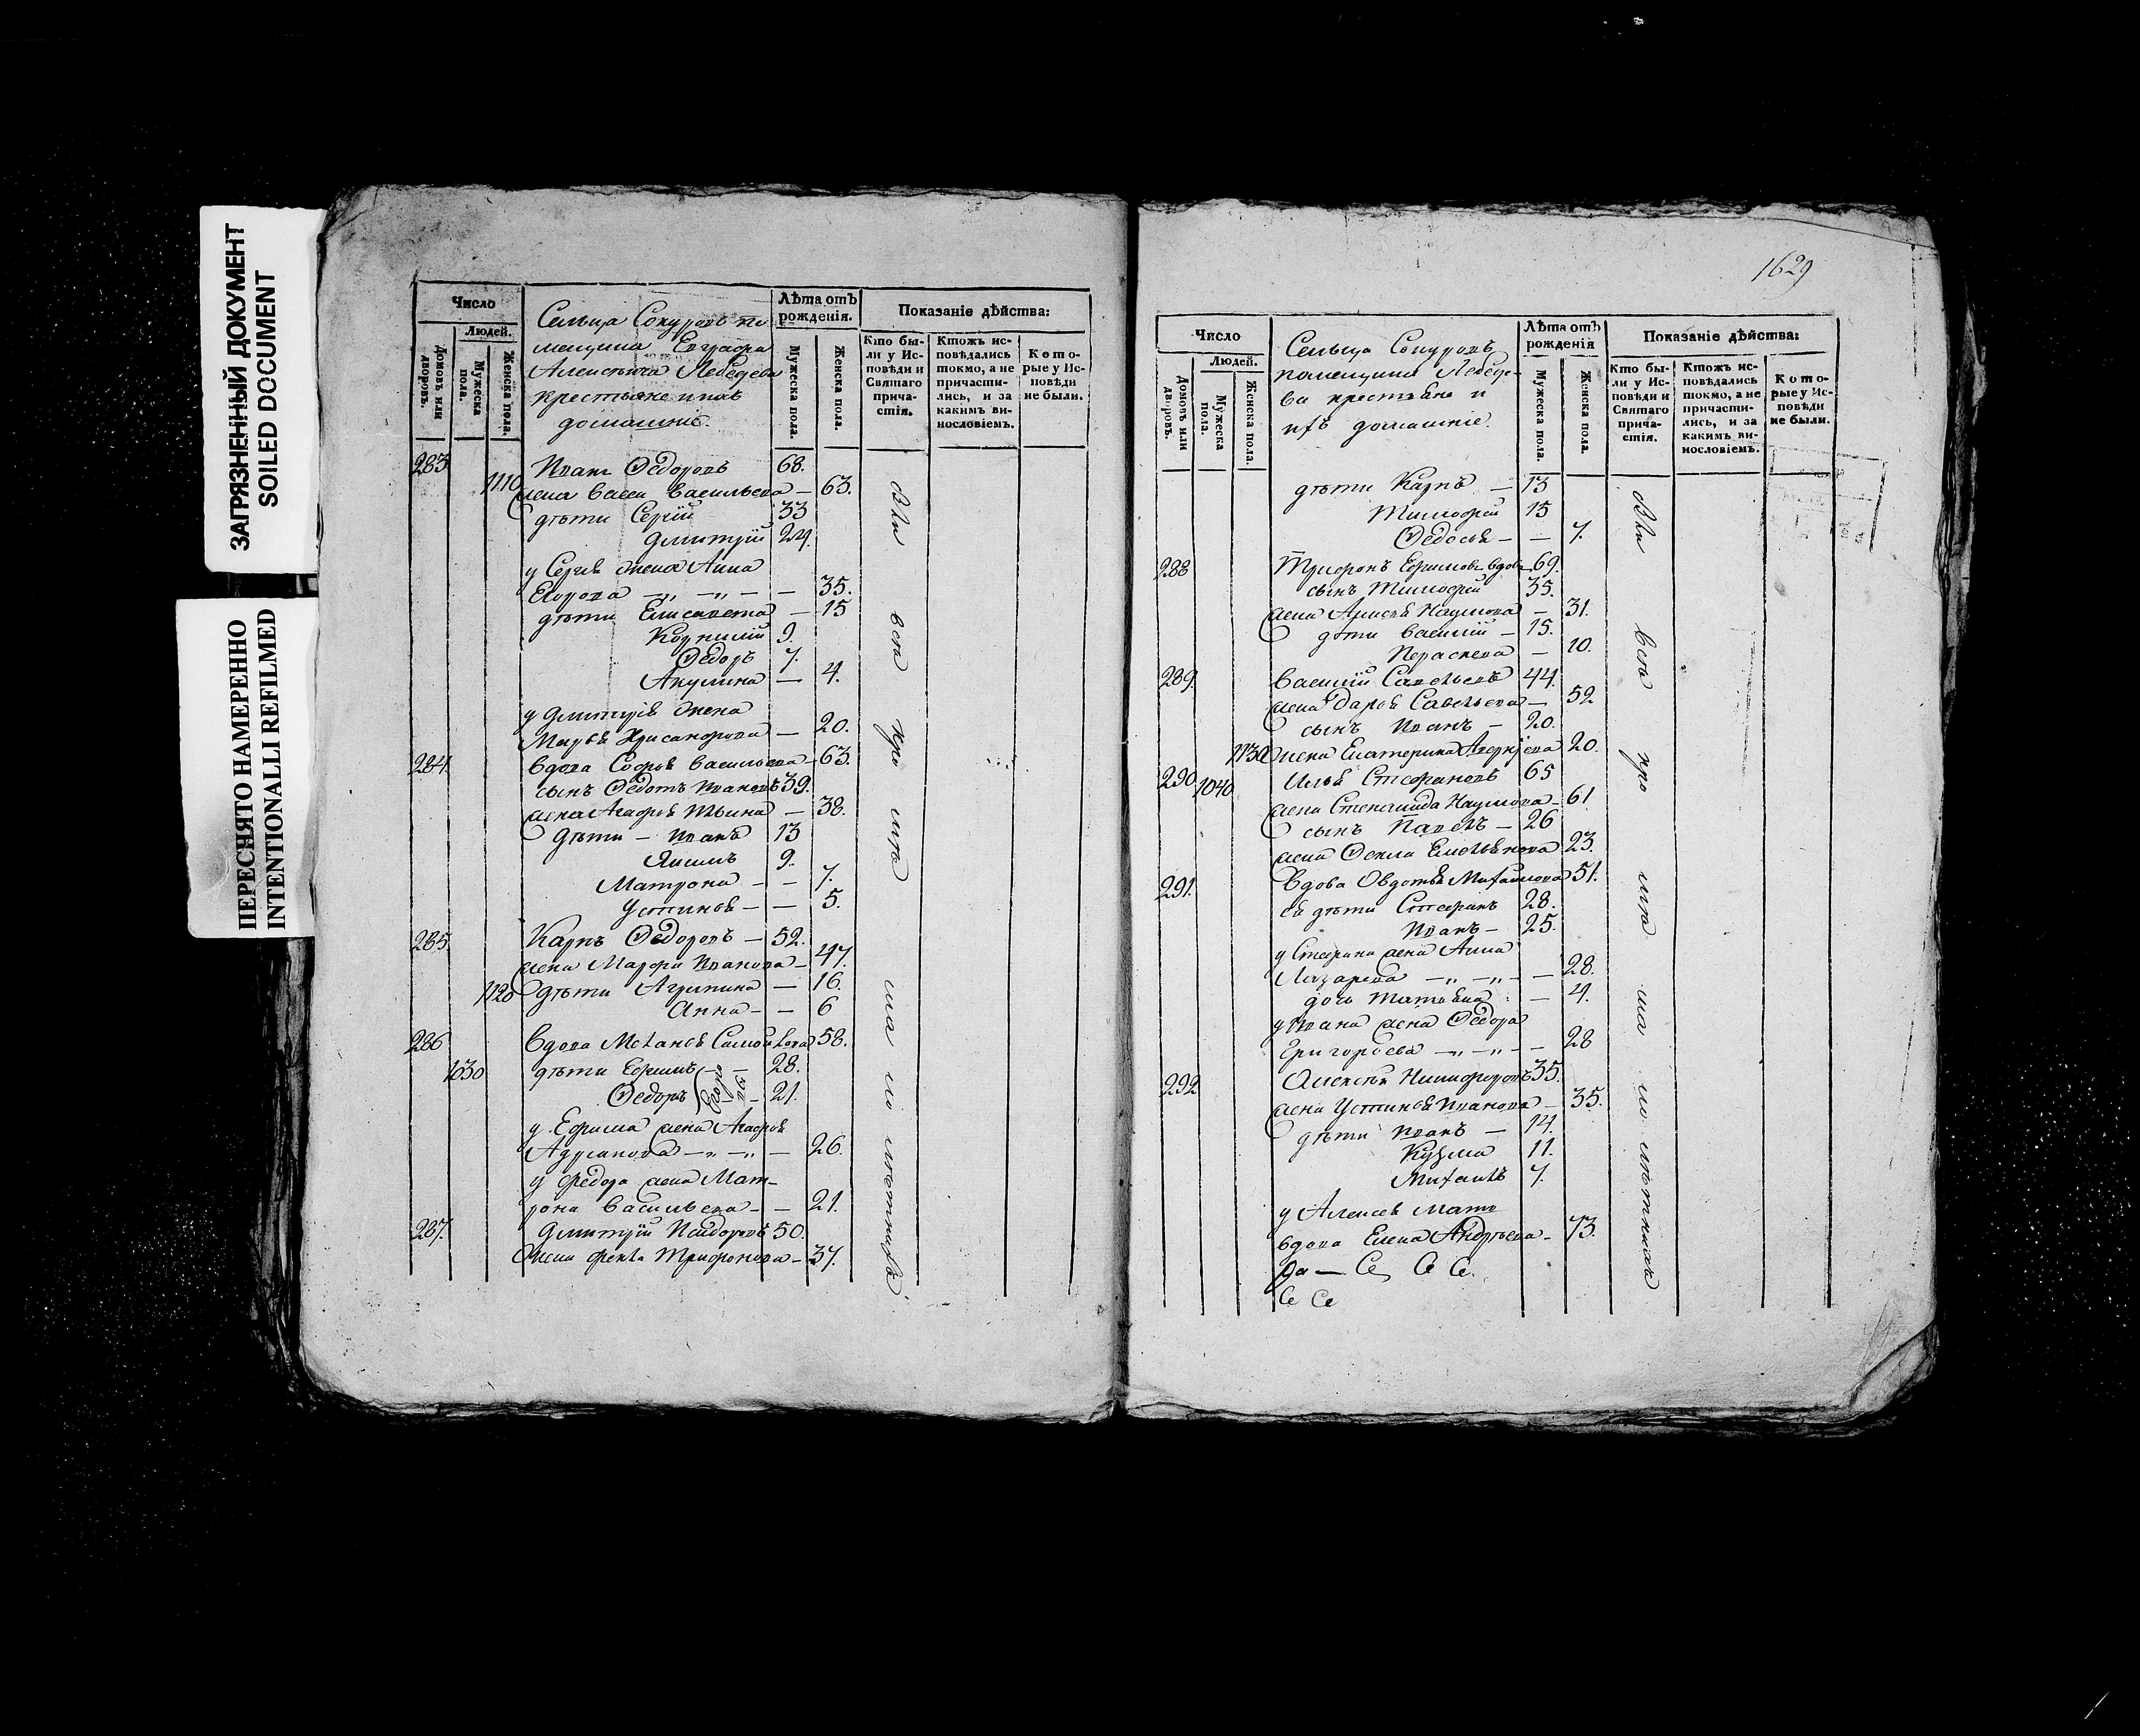 ЗАГРЯЗНЕННЫЙ ДОКУМЕНТ
SOILED DOCUMENT
ПЕРЕСНЯТО НАМЕРЕННО
INTENTIONALLI REFILMED
Число
Людей.
Домовъ или дворовъ.
Мужеска пола.
Женска пола.
Сельца Сокуровъ по
мещика Евграфа
Алексѣича Лебедева
крестьяне и ихъ
домашніе.
Лѣта отъ рожденія.
Мужеска пола.
Женска пола.
Показаніе дѣйства:
Кто бы-
ли у Ис-
повѣди и
Святаго
прича-
стія.
Ктожъ ис-
повѣдались
токмо, а не
причасти-
лись, и за
какимъ ви-
нословіемъ.
Кото-
рые у Ис-
повѣди
не были.
283 Иванъ Ѳедоровъ 68.
1110 жена Васса Васильева — 63.
дѣти Сергій 33
Дмитрій 24.
у Сергѣя жена Анна
— „ — „ — — 35.
дѣти Елисавета — 15
Корнилій 9.
Ѳедоръ 7.
Акулина — 4.
у Дмитрія жена
Марья Хрисанфова — 20.
284. вдова Софья Васильева — 63.
сынъ Ѳедотъ Ивановъ 39.
жена Агафья Ильина — 38.
дѣти — Иванъ 13
Якимъ 9.
Матрона — — 7.
Устинья — — 5.
285. Карпъ Ѳедоровъ — 52.
жена Марфа Иванова — 47.
1120 дѣти Агрипина — 16.
Анна — — 6
286 вдова Меланья Самойлова 58.
1030 дѣти Ефимъ — — 28.
Ѳедоръ — 21.
у Ефима жена Агафья
Адріанова — „ — „ — 26.
у Ѳедора жена Мат-
рона Васильева — — 21.
287. Дмитрій Исидоровъ 50.
жена Фекла Трифонова — 37.
1629
Число
Людей.
Домовъ или дворовъ.
Мужеска пола.
Женска пола.
Сельца Сокуровъ
помещика Лебеде-
ва крестьяне и
ихъ домашніе.
Лѣта отъ рожденія
Мужеска пола.
Женска пола.
Показаніе дѣйства:
Кто бы-
ли у Ис-
повѣди и
Святаго
прича-
стія.
Ктожъ ис-
повѣдались
токмо, а не
причасти-
лись, и за
какимъ ви-
нословіемъ.
Кото-
рые у Ис-
повѣди
не были.
дѣти Карпъ — 13
Тимофей 15
Ѳедосья — — 7.
288 Трифонъ Ефимовъ вдовъ 69.
сынъ Тимофей 35.
жена Наумова — 31.
дѣти Василій — 15.
Параскева — 10.
289. Василій Савельевъ 44.
жена Дарья Савельева — 52
сынъ Иванъ — 20.
1130 жена Екатерина 20.
290 1040 Илья Стефановъ 65
жена Степанида Наумова — 61
сынъ Павелъ — 26
жена Ѳекла Емельянова 23.
291. Вдова Овдотья Михайлова 51.
ея дѣти Стефанъ 28.
Иванъ — 25.
у Стефана жена Анна
Лазарева — „ — „ — — 28.
дочь Татьяна — 4.
у Ивана жена Ѳедора
Григорьева — „ — „ — — 28
292 Алексѣй Никифоровъ 35.
жена Устинья Иванова — 35.
дѣти Иванъ — 14.
Кузма 11.
Михаилъ 7.
у Алексея мать
вдова Елена Андрѣева — 73.